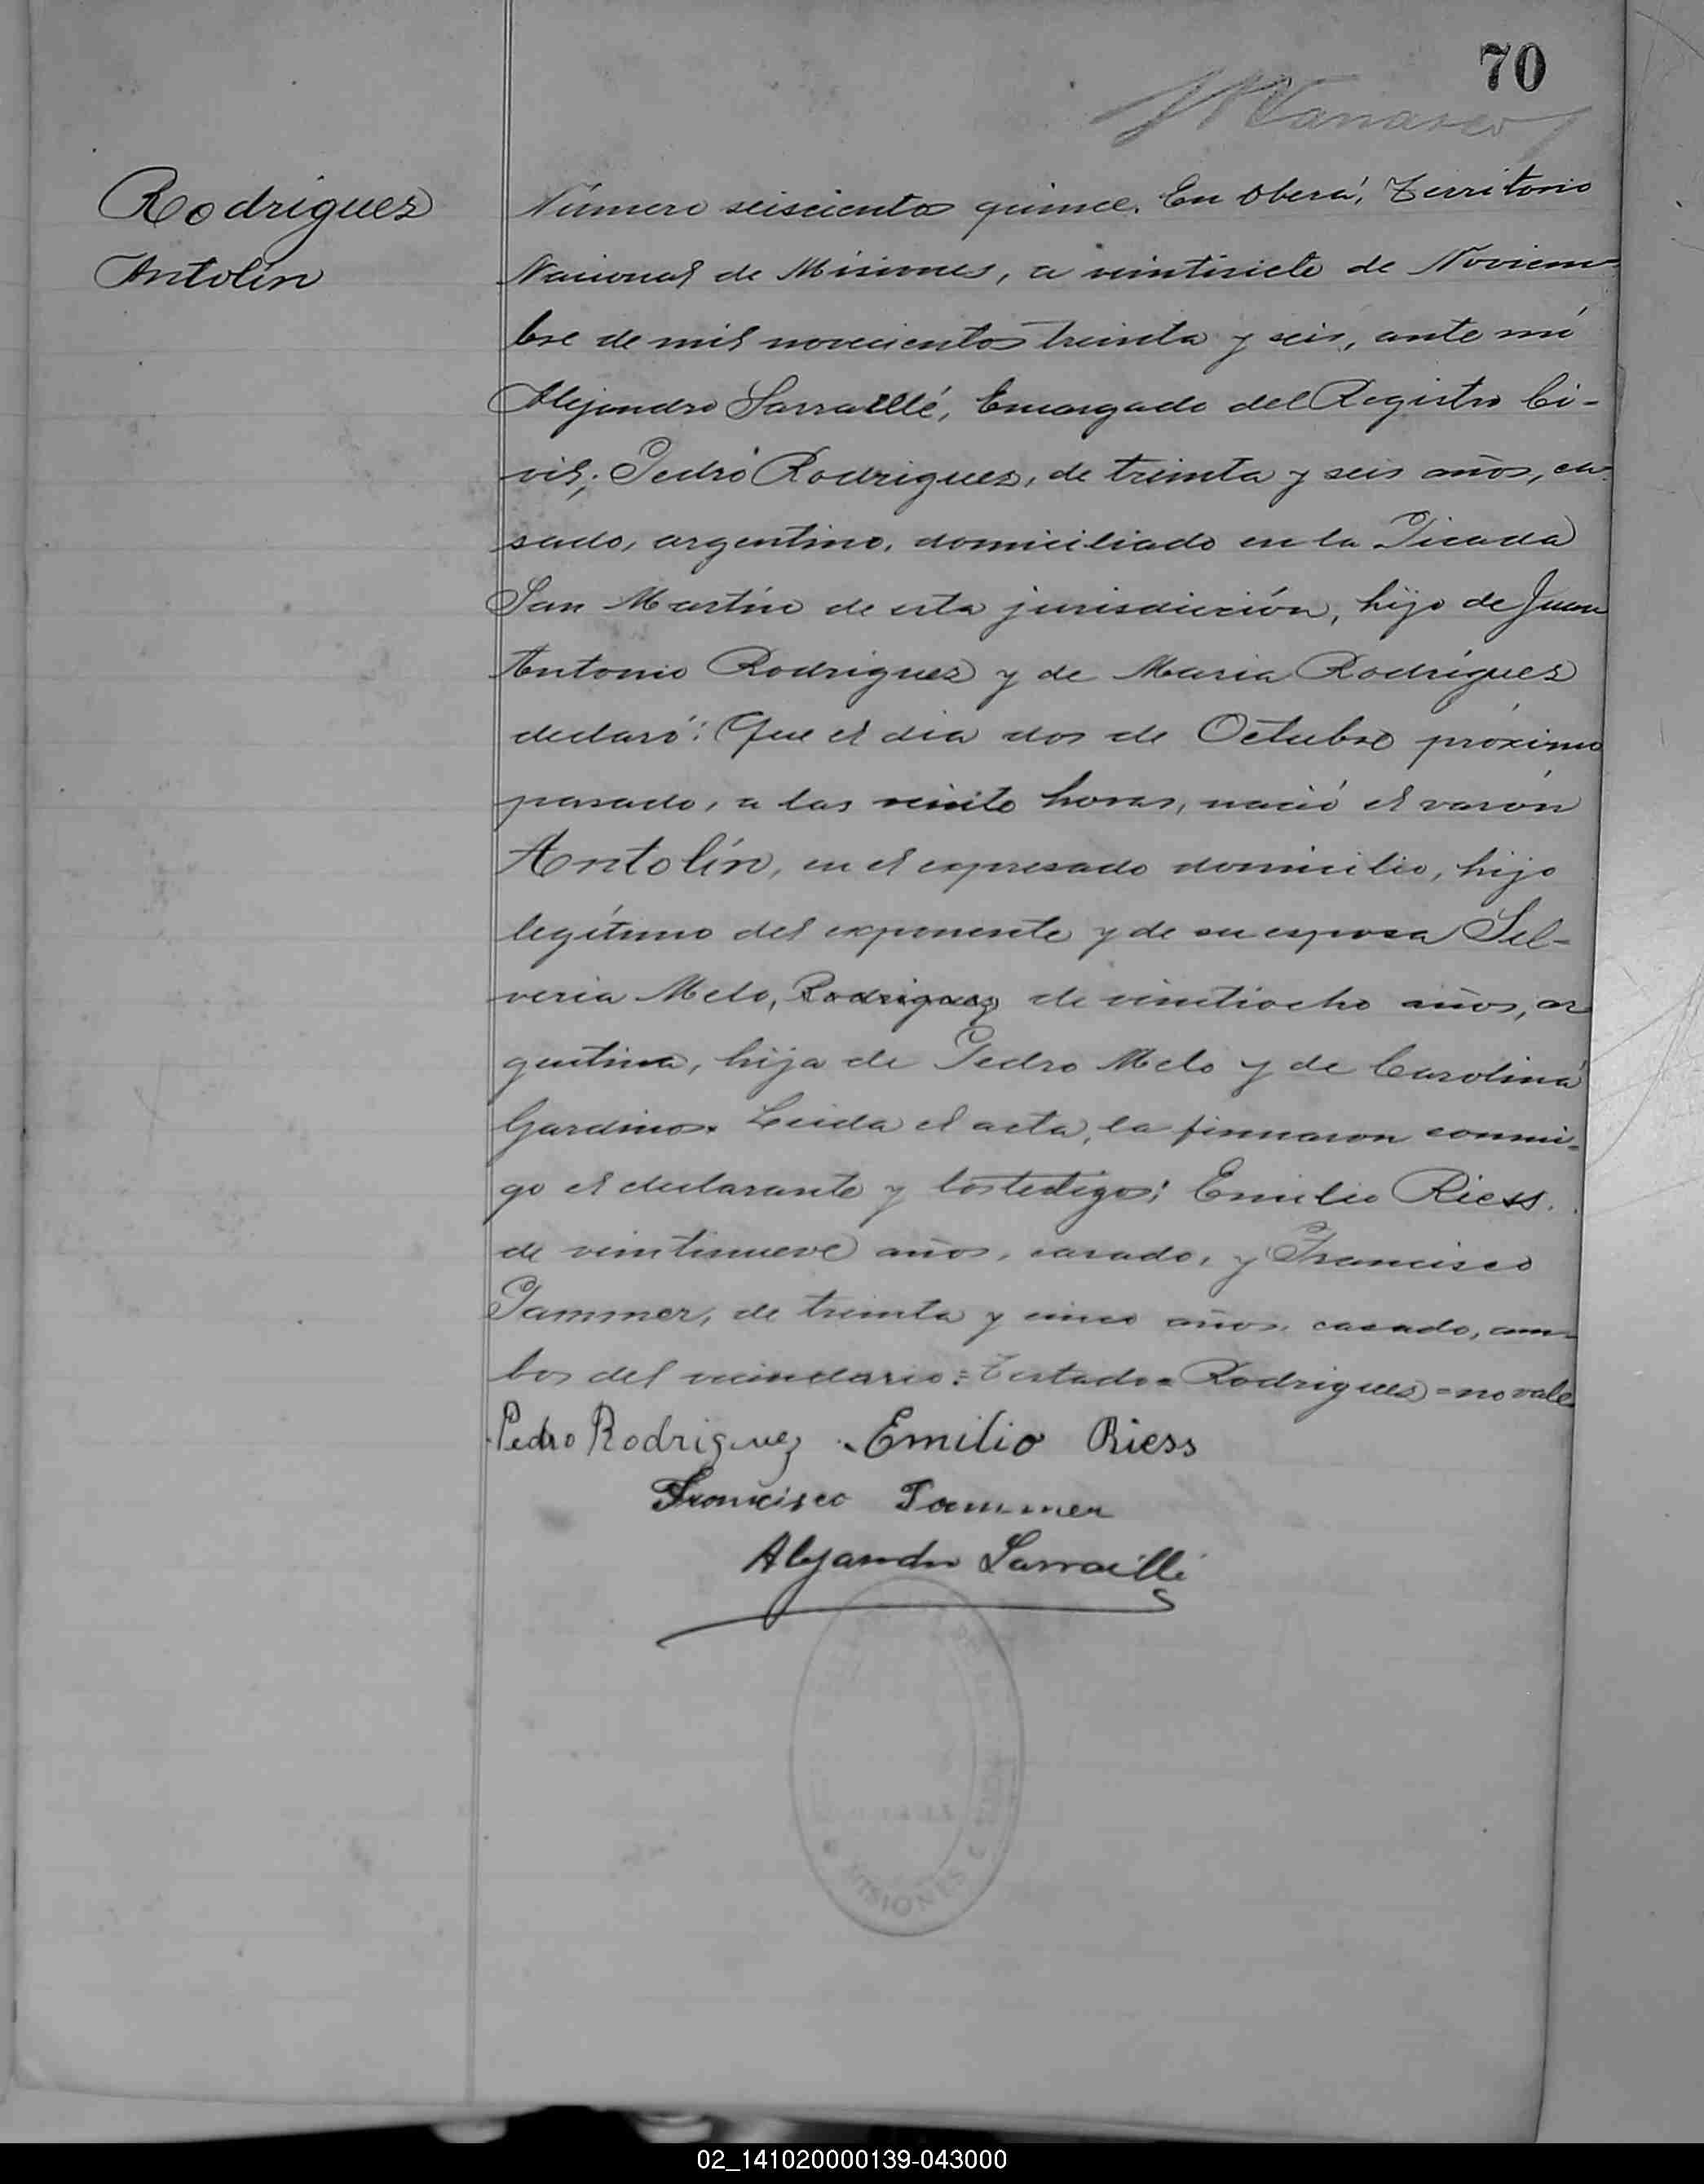 70
Rodríguez
Antolín
Número seiscientos quince. En Oberá, Territorio
Nacional de Misiones, a veintisiete de Noviem-
bre de mil novecientos treinta y seis, ante mí
Alejandro Sarraillé, Encargado del Registro Ci-
vil; Pedro Rodriguez, de treinta y seis años, ca-
sado, argentino, domiciliado en la Picada
San Martín de esta jurisdicción, hijo de Juan
Antonio Rodriguez y de Maria Rodríguez
declaró: Que el día dos de Octubre próximo
pasado, a las veinte horas, nació el varón
Antolín, en el expresado domicilio, hijo
legítimo del exponente y de su esposa Sil-
veria Melo, Rodriguez de veintiocho años, ar
gentina, hija de Pedro Melo y de Carolina
Gardino. Leida el acta, la firmaron conmi-
go el declarante y los testigos: Emilio Riess.
de veintinueve años, casado, y Francisco
Tammer, de treinta y cinco años, casado, am-
bos del vecindario.=Testado=Rodriguez=no vale
Pedro Rodriguez Emilio Riess
Francisco Tammer
Alejandro Sarraillé
MISIONES
02_141020000139-043000